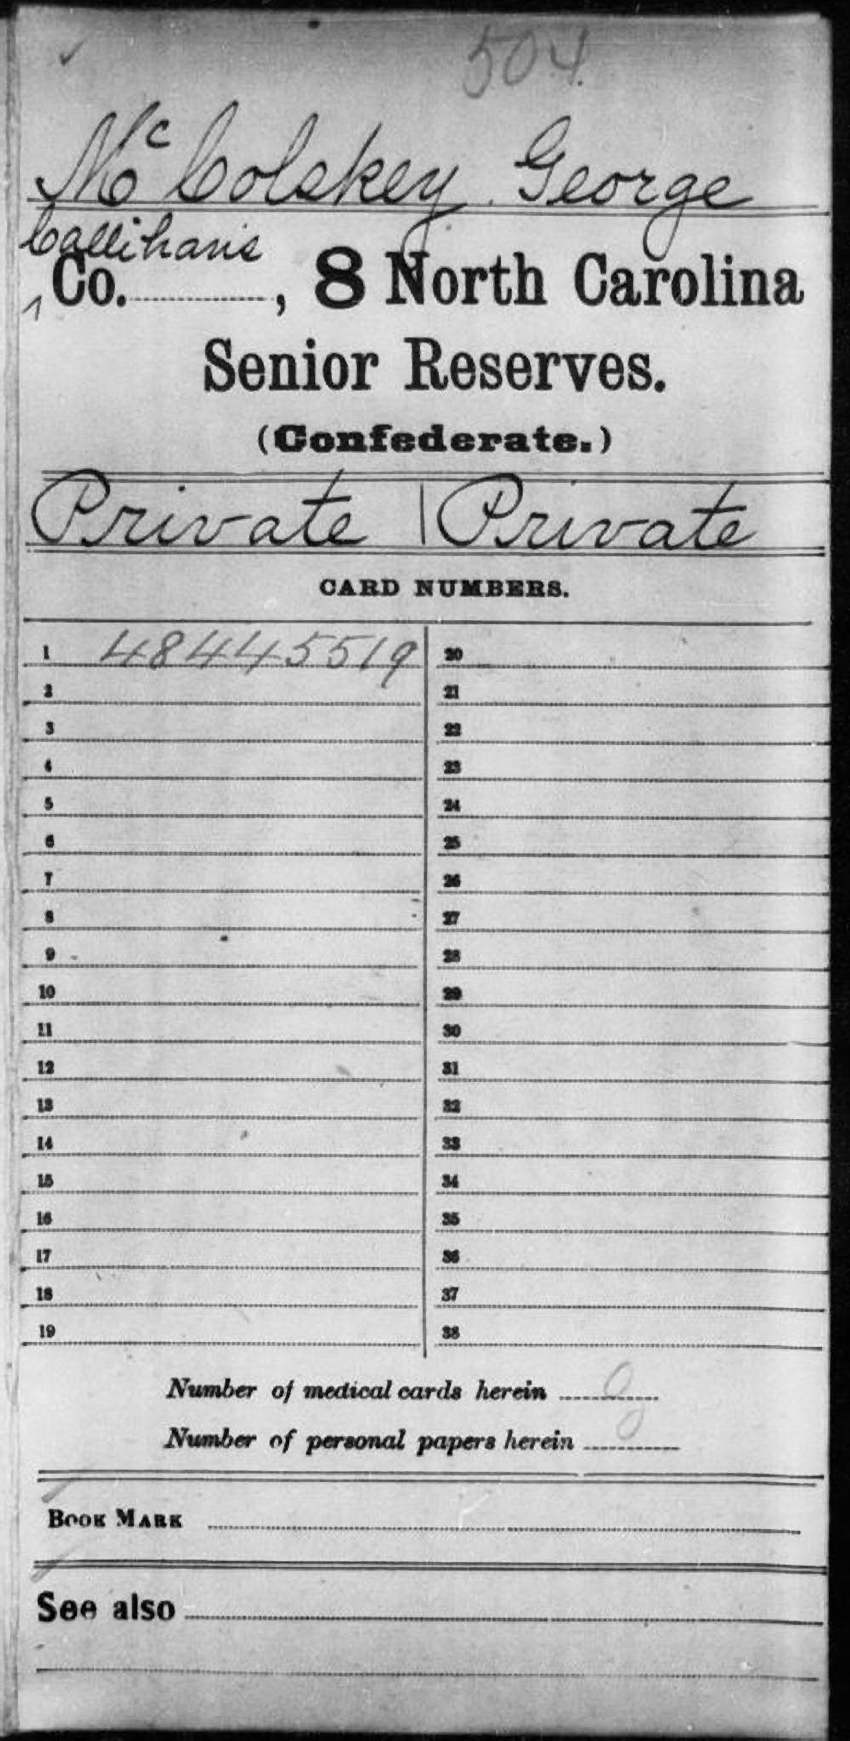 504
McColskey, George
Callihan's
Co. , 8 North Carolina
Senior Reserves.
(Confederate.)
Private | Private
CARD NUMBERS.
1 48445519 20
2 21
3 22
4 23
5 24
6 25
7 26
8 27
9 28
10 29
11 30
12 31
13 32
14 33
15 34
16 35
17 36
18 37
19 38
Number of medical cards herein 0
Number of personal papers herein 0
BOOK MARK
See also